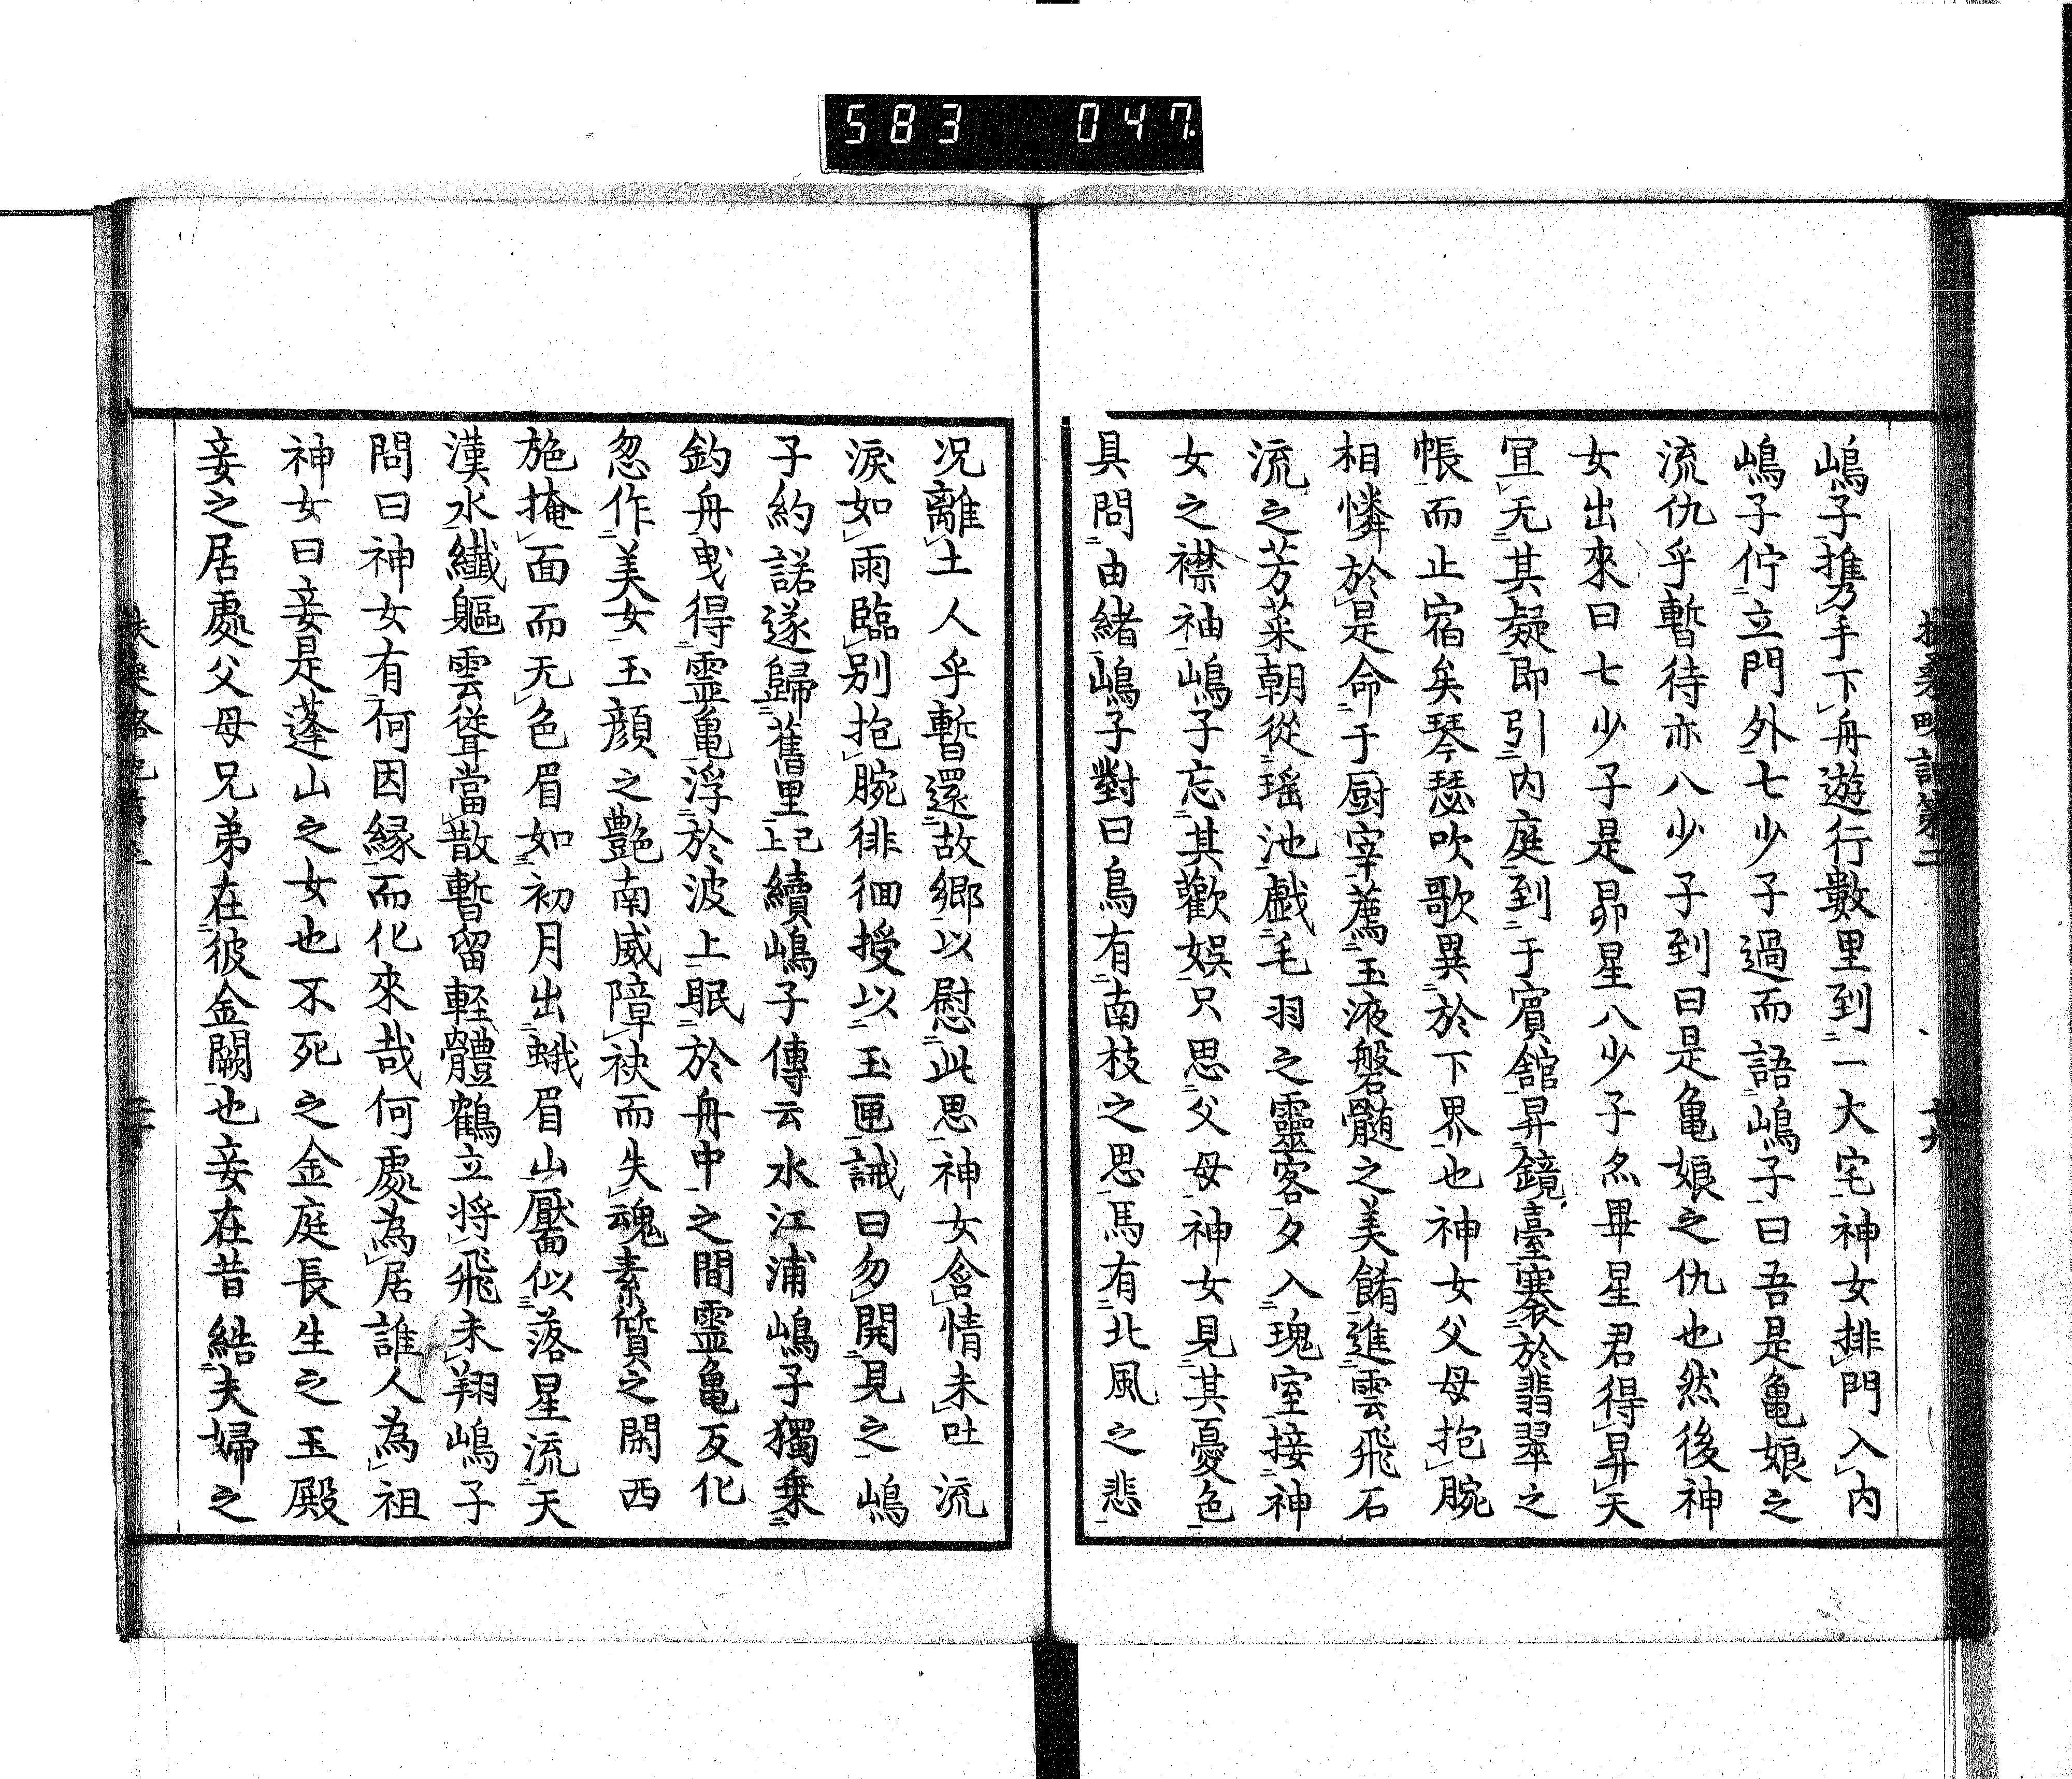 583 047
嶋子携手下舟遊行數里到二一大宅一神女排門入内
嶋子佇二立門外一七少子過而語二嶋子一曰吾是亀娘之
流仇乎暫待亦八少子到曰是亀娘之仇也然後神
女出來曰七少子是昴星八少子是畢星君得昇天
冝无二其疑一即引二内庭一到二于賓舘一昇鏡臺褰二於翡翠之
帳一而止宿矣琴瑟吹歌異二於下界一也神女父母抱腕
相憐於是命二于厨宰一薦二玉液磐髄之美餚一進二雲飛石
流之芳菜一朝從二瑶池一戯二毛羽之靈客一夕入二瑰室一接二神
女之襟袖一嶋子忘二其歡娯一只思二父母一神女見二其憂色一
具問二由緒一嶋子對曰鳥有二南枝之思一馬有二北風之悲一
况離土人乎暫還二故郷一以慰二此思一神女含情未吐流
涙如雨臨別抱腕徘徊授以二玉匣一誡曰勿二開見之一嶋
子約諾遂歸二舊里一已上續嶋子傳云水江浦嶋子獨乗二
釣舟一曳得二霊亀一浮二於波上一眠二於舟中一之間霊亀反化
忽作二美女一玉顔之艶南威障袂而失魂素質之閑西
施掩面而无色眉如三初月出二蛾眉山一靨似三落星流二天
漢水一纎軀雲聳當散暫留軽體鶴立將飛未翔嶋子
問曰神女有二何因縁一而化來哉何處為居誰人為祖
神女曰妾是蓬山之女也不死之金庭長生之玉殿
妾之居處父母兄弟在二彼金闕一也妾在昔結二夫婦之